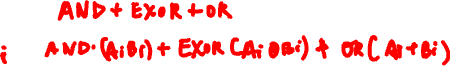 AND + EXOR + OR
i AND·(AiBi) + EXOR (Ai⊕Bi) + OR(Ai+Bi)